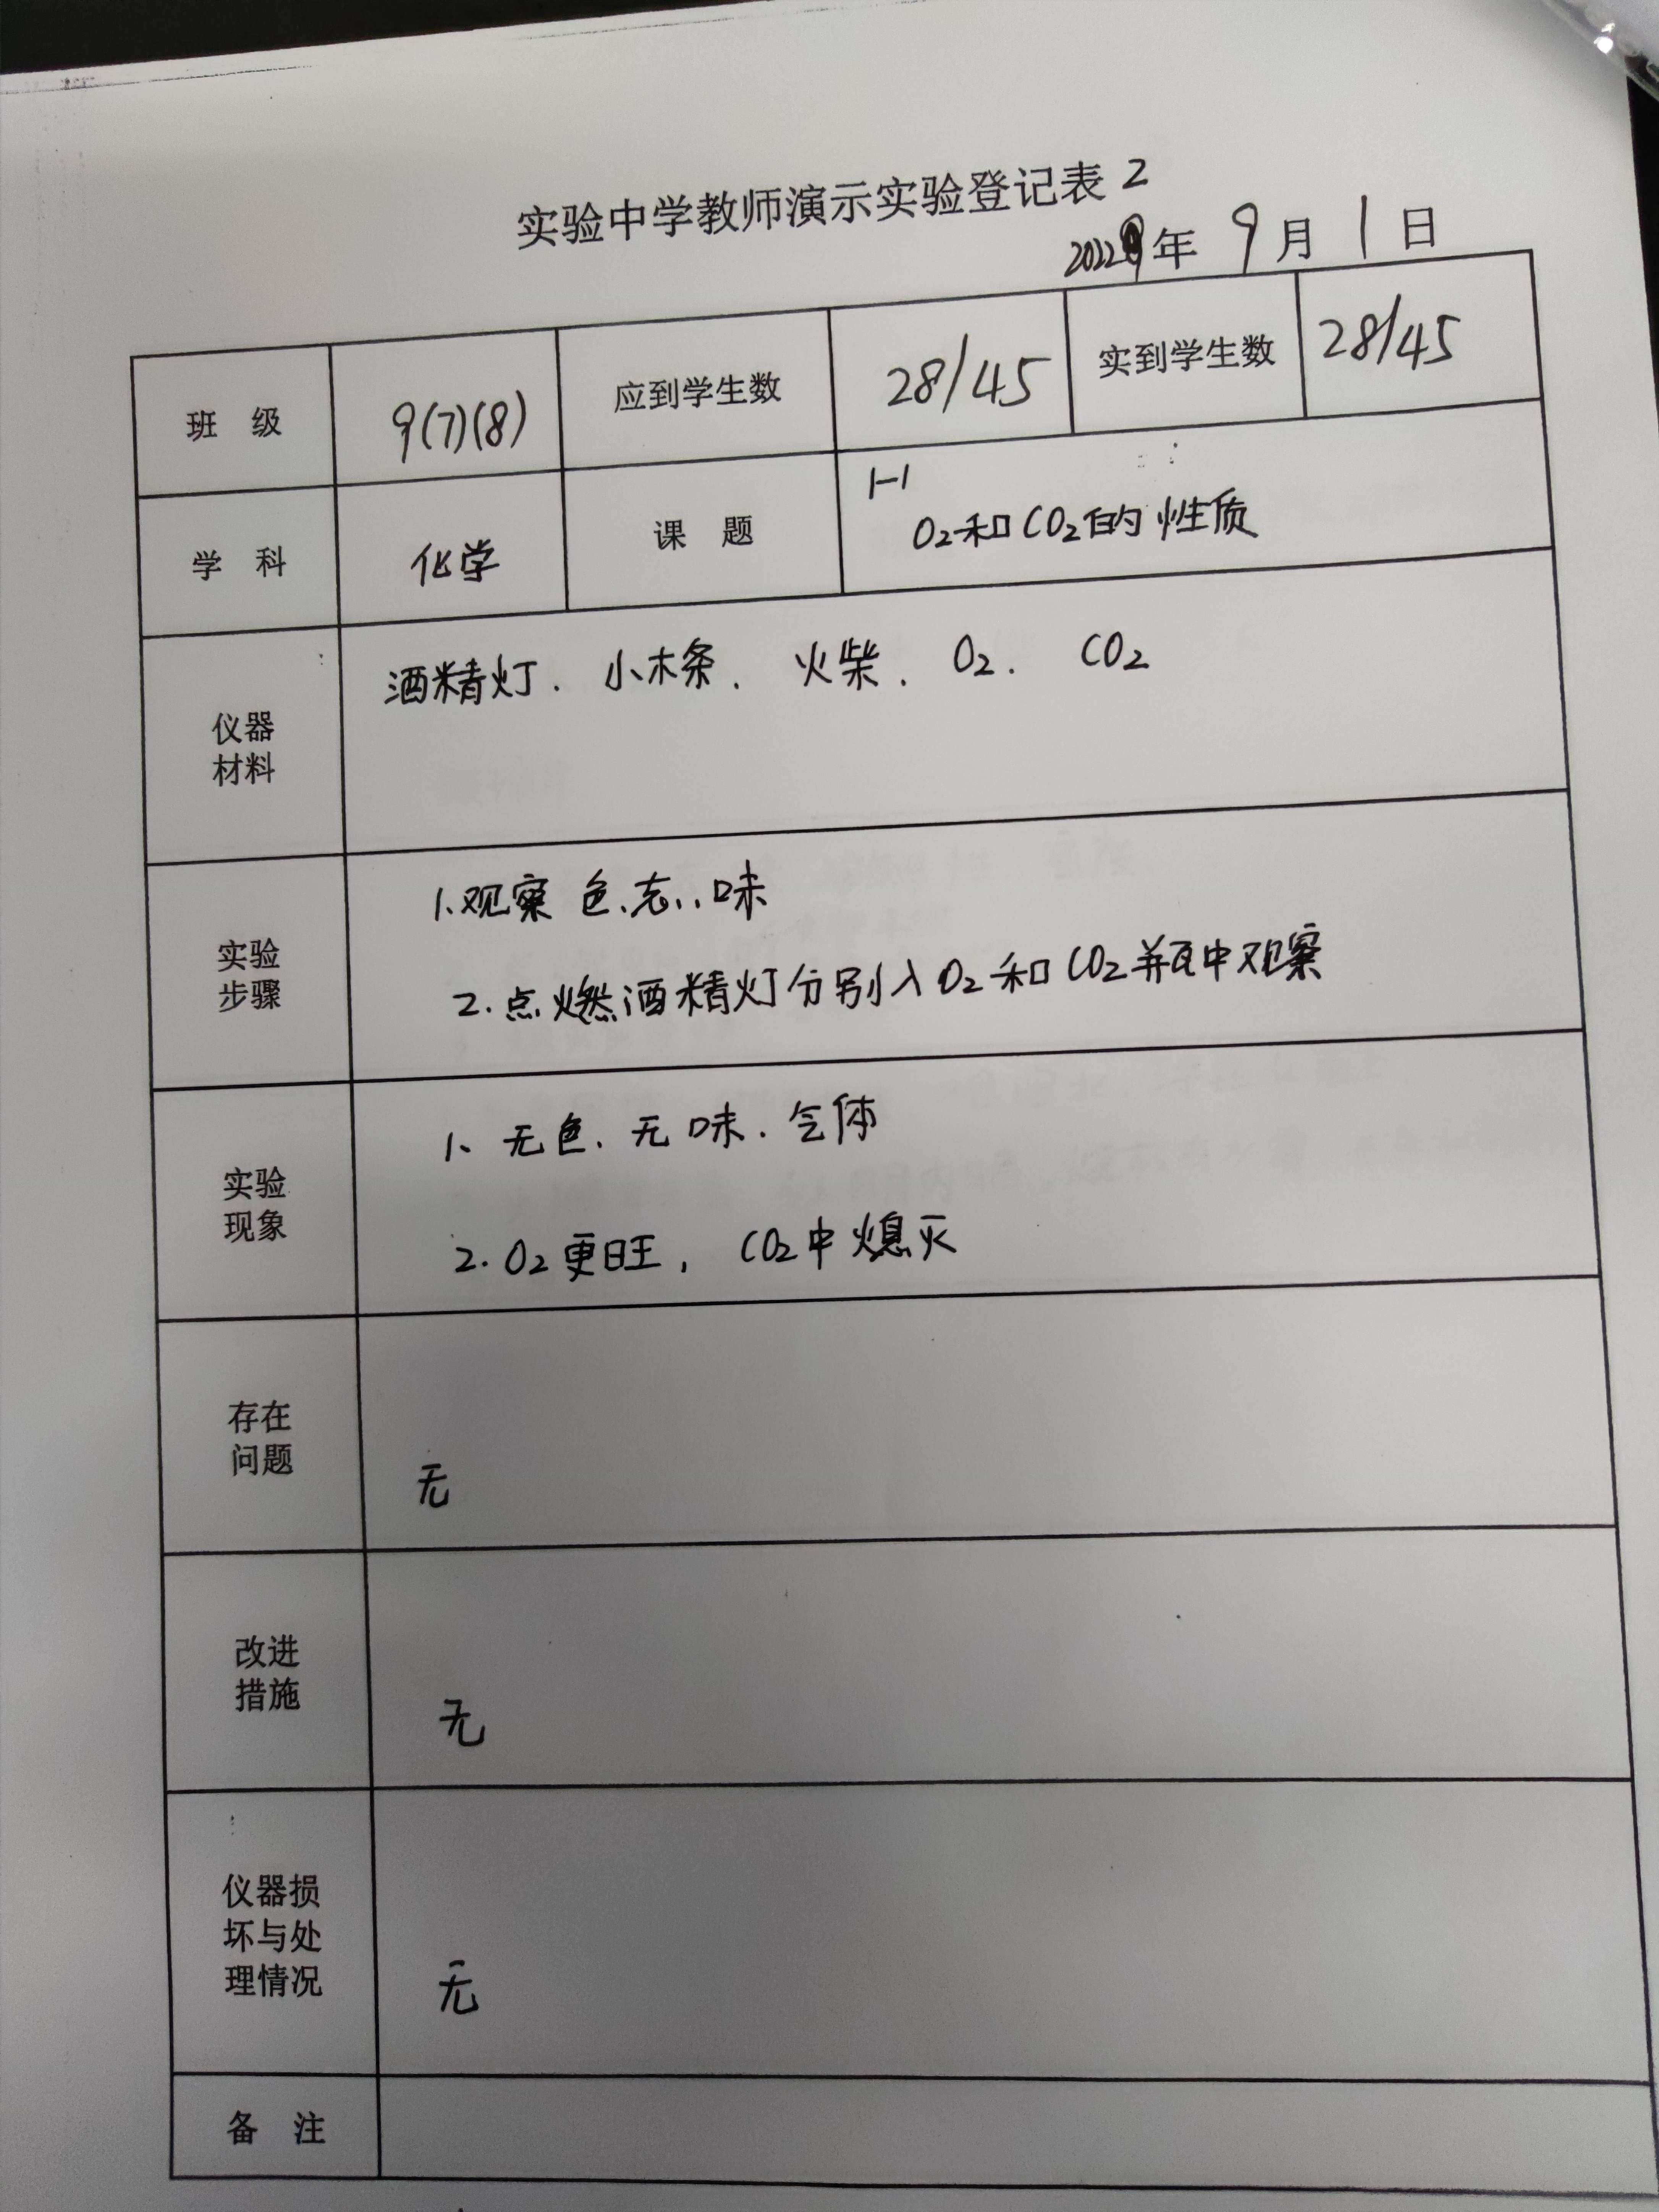 实验中学教师演示实验登记表 2
2022年 9月 1日
班 级 9(7)(8) 应到学生数 28/45 实到学生数 28/45
学 科 化学 课 题 1-1
O₂和CO₂的性质
仪器
材料
酒精灯. 小木条. 火柴. O₂. CO₂
实验
步骤
1.观察 色.态..味
2.点燃酒精灯分别入O₂和CO₂瓶中观察
实验
现象
1、无色.无味.气体
2.O₂更旺, CO₂中熄灭
存在
问题
无
改进
措施
无
仪器损
坏与处
理情况
无
备 注